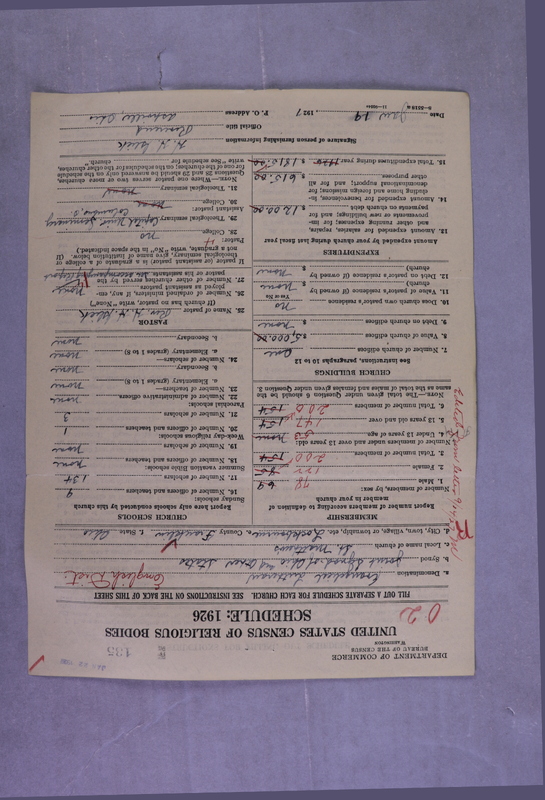 DEPARTMENT OF COMMERCE
BUREAU OF THE CENSUS
WASHINGTON
135
UNITED STATES CENSUS OF RELIGIOUS BODIES
SCHEDULE: 1926
FILL OUT SEPARATE SCHEDULE FOR EACH CHURCH. SEE INSTRUCTIONS ON THE BACK OF THIS SHEET
a. Denomination Evangelical Lutheran English Dist.
b. Synod Joint Synod of Ohio and Other States
c. Local name of church St. Matthews
d. City, town, village, or township, etc. Lockbourne, County Franklin, State Ohio
MEMBERSHIP
Report number of members according to definition of member in your church
Number of members, by sex:
1. Male 69 78
2. Female 122
3. Total number of members 154 200
Number of members under and over 13 years old:
4. Under 13 years of age None 53
5. 13 years old and over 154 147
6. Total number of members 154 200
NOTE.—The total given under question 6 should be the same as the total of males and females given under question 3
CHURCH BUILDINGS
See instructions, paragraphs 10 to 12
7. Number of church edifices One
8. Value of church edifices $ 5,000.00
9. Debt on church edifices $ None
10. Does church own pastor's residence no
Yes or No
11. Value of pastor's residence (if owned by church) $ None
12. Debt on pastor's residence (if owned by church) $ None
EXPENDITURES
Amount expended by your church during last fiscal year
13. Amount expended for salaries, repairs, and other running expenses; for improvements or new buildings; and for payments on church debt $ 1200.00
14. Amount expended for benevolences, including home and foreign missions; for denominational support; and for all other purposes $ 615.00
15. Total expenditures during year $ 1815.00
CHURCH SCHOOLS
Report here only schools conducted by this church
Sunday schools:
16. Number of officers and teachers 9
17. Number of scholars 134
Summer vacation Bible schools:
18. Number of officers and teachers none
19. Number of scholars none
Week-day religious schools:
20. Number of officers and teachers 1
21. Number of scholars 3
Parochial schools:
22. Number of administrative officers none
23. Number of teachers—
a. Elementary (grades 1 to 8) none
b. Secondary none
24. Number of scholars—
a. Elementary (grades 1 to 8) none
b. Secondary none
PASTOR
25. Name of pastor Rev. H. H. Glick
(If church has no pastor, write "None")
26. Number of ordained ministers, if any, employed as assistant pastors None
27. Number of other churches served by the pastor
If pastor or assistant pastor is a graduate of a college or theological seminary, give name of institution below. (If not a graduate, write "No" in the space indicated.)
Pastor:
28. College no
29. Theological seminary Capital Univ. Seminary Columbus, O.
Assistant pastor:
30. College none
31. Theological seminary none
NOTE.—Where one pastor serves two or more churches, Questions 28 and 29 should be answered only on the schedule for one of the churches; on the schedule for the other churches write "See schedule for church."
Signature of person furnishing information H. H. Glick
Official title Reverend
Date Jan 19 1927 P. O. Address Ashville, Ohio